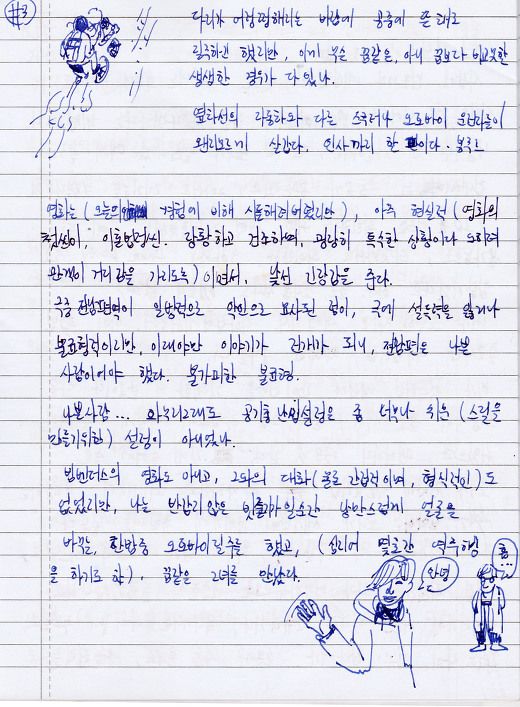 #3
다리가 어정쩡해리는 바람에 공중에 뜬 채로
질주하긴 했지만, 이게 무슨 꿈같은, 아니 꿈보다 비교못한
생생한 경우가 다 있나.
옆차선의 자동차와 다른 스쿠터나 오토바이 운전자들이
왠지모르게 살갑다. 인사까지 한 판이다. 봉쥬르
영화는 (오늘의 경험에 비해 시들해져버렸지만), 아주 현실적 (영화의
첫씬이, 이혼법정씬. 당황하고 건조하며, 굉장히 특수한 상황이나 오히려
관객이 거리감을 가지도록) 이면서, 낯선 긴장감을 준다.
극중 전남편역이 일방적으로 악인으로 묘사된 점이, 극에 설득력을 잃거나
불균형적이지만, 이래야만 이야기가 전개가 되니, 전남편은 나쁜
사람이어야 했다. 불가피한 불균형.
나쁜사람... 와누리2래도 공기총난입설정은 좀 너무나 쉬운 (스릴을
만들기위한) 설정이 아니었나.
빔벤더스의 영화도 아니고, 그와의 대화(물론 간접적이며, 형식적인)도
없었지만, 나는 반갑지않은 빗줄기가 일순간 낭만스럽게 얼굴을
바꾸는, 한밤중 오토바이질주를 했고, (심지어 몇초간 역주행
을 하기도 함). 꿈같은 그녀를 만났다.
안녕
흠...